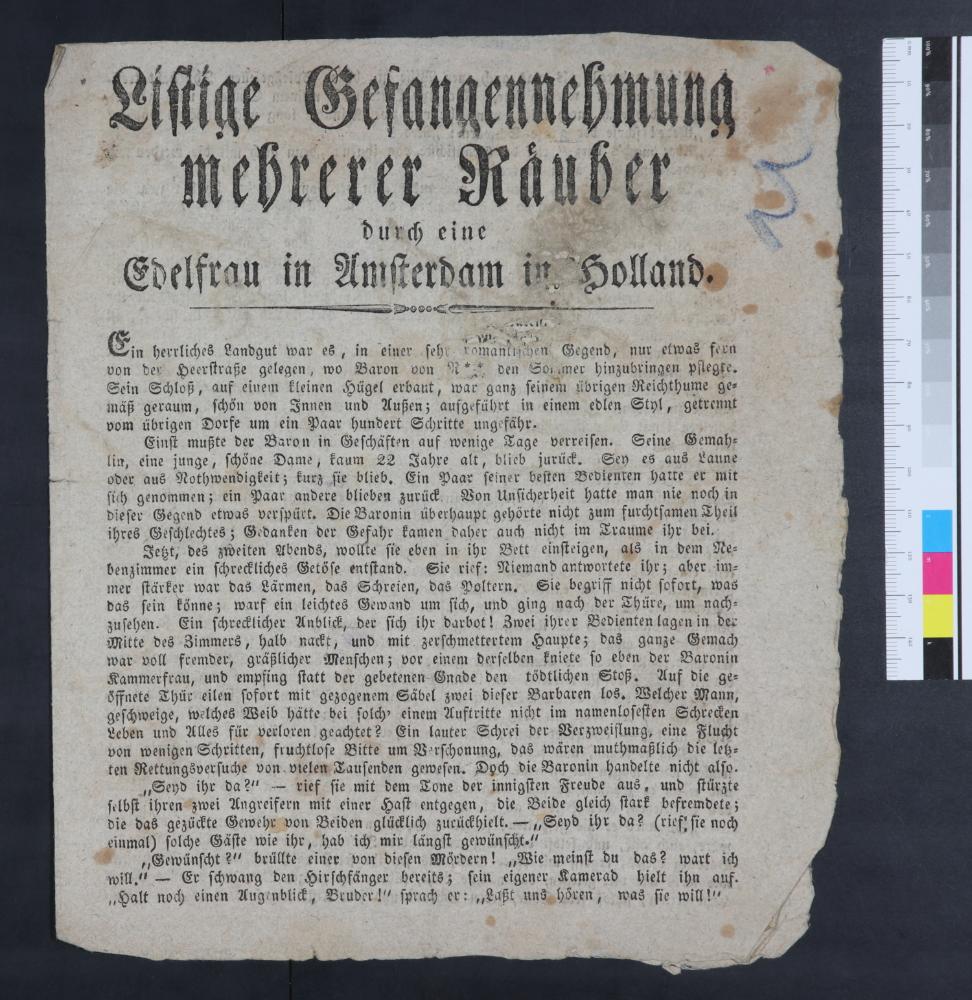 Listige Gefangennehmung
mehrerer Räuber
durch eine
Edelfrau in Amsterdam in Holland.
Ein herrliches Landgut war es, in einer sehr romantischen Gegend, nur etwas fern
von der Heerstraße gelegen, wo Baron von N*** den Sommer hinzubringen pflegte.
Sein Schloß, auf einem kleinen Hügel erbaut, war ganz seinem übrigen Reichthume ge-
mäß geraum, schön von Innen und Außen; aufgeführt in einem edlen Styl, getrennt
vom übrigen Dorfe um ein Paar hundert Schritte ungefähr.
Einst mußte der Baron in Geschäften auf wenige Tage verreisen. Seine Gemah-
lin, eine junge, schöne Dame, kaum 22 Jahre alt, blieb zurück. Sey es aus Laune
oder aus Nothwendigkeit; kurz sie blieb. Ein Paar seiner besten Bedienten hatte er mit
sich genommen; ein Paar andere blieben zurück. Von Unsicherheit hatte man nie noch in
dieser Gegend etwas verspürt. Die Baronin überhaupt gehörte nicht zum furchtsamen Theil
ihres Geschlechtes; Gedanken der Gefahr kamen daher auch nicht im Traume ihr bei.
Jetzt, des zweiten Abends, wollte sie eben in ihr Bett einsteigen, als in dem Ne-
benzimmer ein schreckliches Getöse entstand. Sie rief: Niemand antwortete ihr; aber im-
mer stärker war das Lärmen, das Schreien, das Poltern. Sie begriff nicht sofort, was
das sein könne; warf ein leichtes Gewand um sich, und ging nach der Thüre, um nach-
zusehen. Ein schrecklicher Anblick, der sich ihr darbot! Zwei ihrer Bedienten lagen in der
Mitte des Zimmers, halb nackt, und mit zerschmettertem Haupte; das ganze Gemach
war voll fremder, gräßlicher Menschen; vor einem derselben kniete so eben der Baronin
Kammerfrau, und empfing statt der gebetenen Gnade den tödtlichen Stoß. Auf die ge-
öffnete Thür eilen sofort mit gezogenem Säbel zwei dieser Barbaren los. Welcher Mann,
geschweige, welches Weib hätte bei solch' einem Auftritte nicht im namenlosesten Schrecken
Leben und Alles für verloren geachtet? Ein lauter Schrei der Verzweiflung, eine Flucht
von wenigen Schritten, fruchtlose Bitte um Verschonung, das wären muthmaßlich die letz-
ten Rettungsversuche von vielen Tausenden gewesen. Doch die Baronin handelte nicht also.
„Seyd ihr da?“ — rief sie mit dem Tone der innigsten Freude aus, und stürzte
selbst ihren zwei Angreifern mit einer Hast entgegen, die Beide gleich stark befremdete;
die das gezückte Gewehr von Beiden glücklich zurückhielt. — „Seyd ihr da? (rief sie noch
einmal) solche Gäste wie ihr, hab ich mir längst gewünscht.“
„Gewünscht?“ brüllte einer von diesen Mördern! „Wie meinst du das? wart ich
will.“ — Er schwang den Hirschfänger bereits; sein eigener Kamerad hielt ihn auf.
„Halt noch einen Augenblick, Bruder!“ sprach er: „Laßt uns hören, was sie will!“